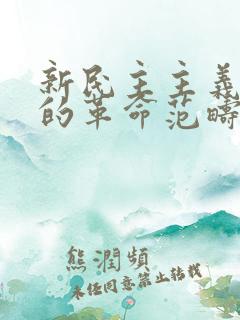 新民主主義
的革命范疇
熊潤頻
未任同意禁止转载